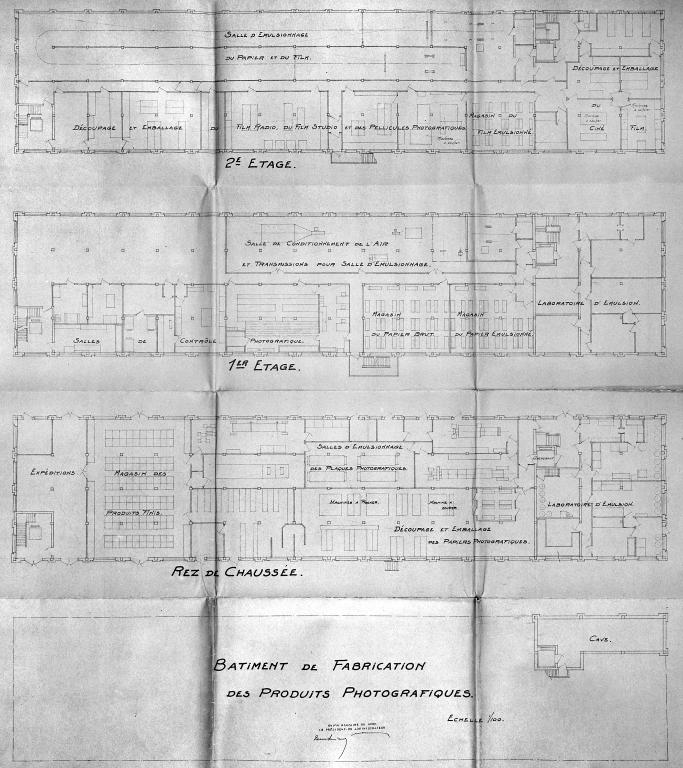 SALLE D'EMULSIONNAGE
DU PAPIER ET DU FILM.
DÉCOUPAGE ET EMBALLAGE
DU CINÉ FILM.
DÉCOUPAGE ET EMBALLAGE DU FILM RADIO, DU FILM STUDIO ET DES PELLICULES PHOTOGRAFIQUES
MAGASIN DU
FILM EMULSIONNÉ
2E ETAGE.
SALLE DE CONDITIONNEMENT DE L'AIR
ET TRANSMISSIONS POUR SALLE D'EMULSIONNAGE.
LABORATOIRE D'EMULSION.
MAGASIN
DU PAPIER BRUT.
MAGASIN
DU PAPIER EMULSIONNÉ.
SALLES DE CONTRÔLE PHOTOGRAFIQUE.
1ER ETAGE.
SALLES D'EMULSIONNAGE
DES PLAQUES PHOTOGRAFIQUES.
EXPÉDITIONS
MAGASIN DES
PRODUITS FINIS.
LABORATOIRE D'EMULSION.
DÉCOUPAGE ET EMBALLAGE
DES PAPIERS PHOTOGRAFIQUES.
REZ DE CHAUSSÉE.
CAVE.
BATIMENT DE FABRICATION
DES PRODUITS PHOTOGRAFIQUES.
ECHELLE 1/100.
LE PRÉSIDENT DU